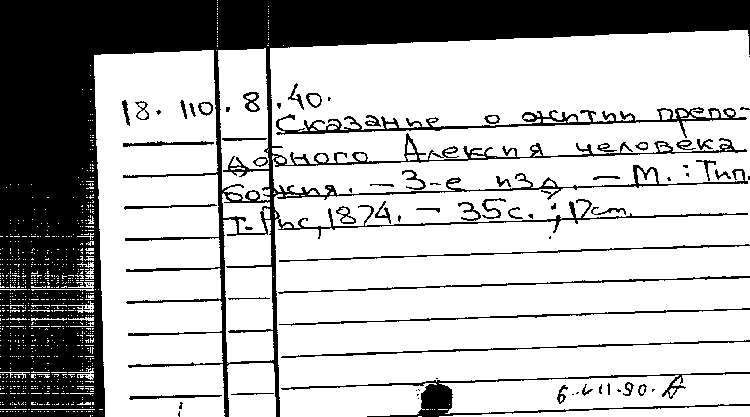 18. 110. 8. 40.
Сказание о житии препо-
добного Алексия человека
божия. – 3-е изд. – М. : Тип.
Т. Рис, 1874. – 35с. ; 17см.